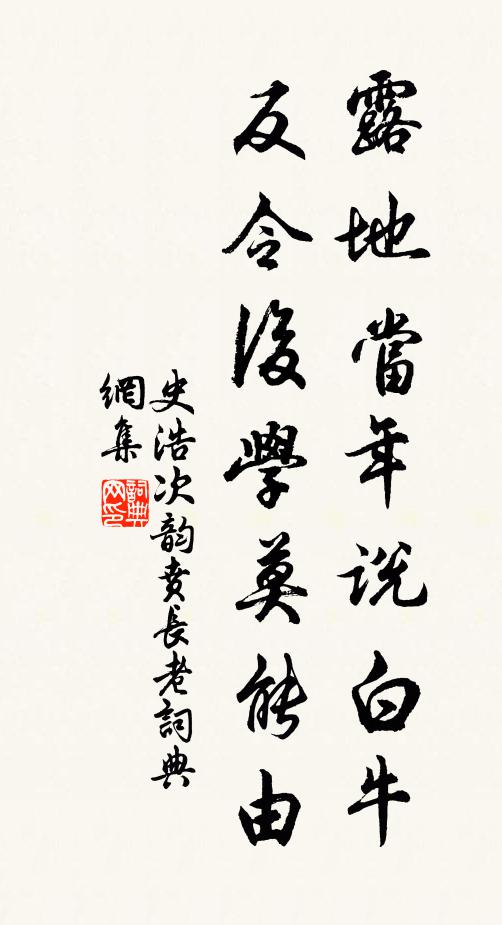 露地當年説白牛
反令後學莫能由
史浩次韵賁長老詞典
網集
詞典網印